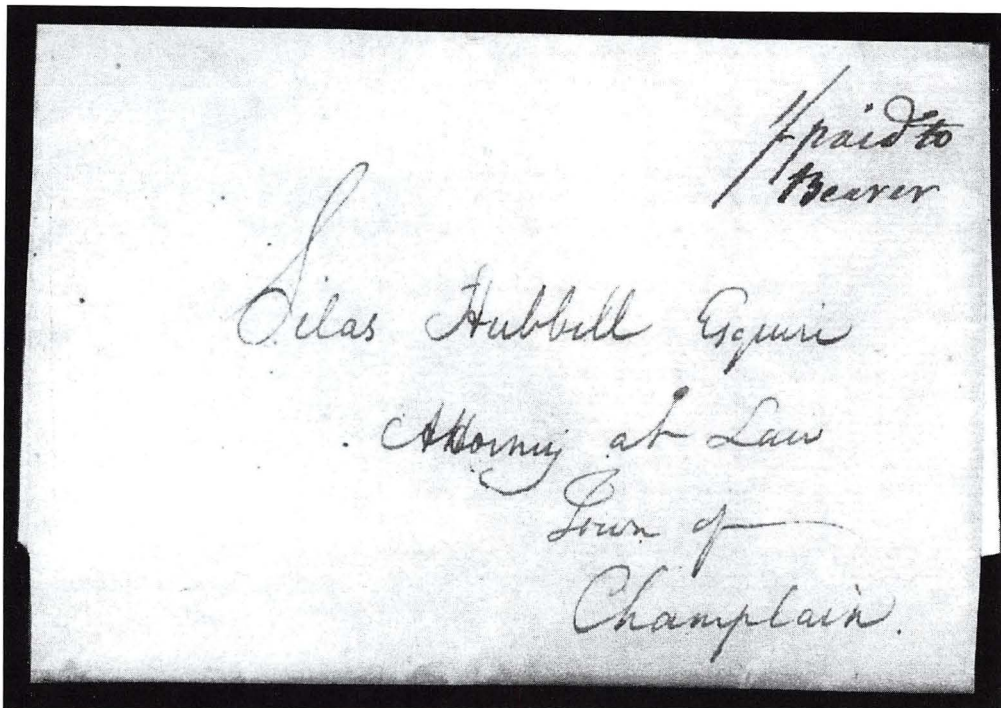 1/ paid to
Bearer
Silas Hubbell Esquire
Attorney at Law
Town of
Champlain.